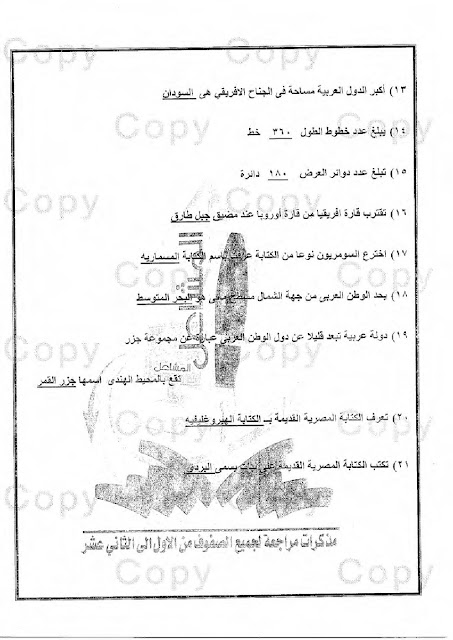 Copy Copy
١٣) أكبر الدول العربية مساحة فى الجناح الافريقي هى السودان
Copy Copy
١٤) يبلغ عدد خطوط الطول ٣٦٠ خط
١٥) تبلغ عدد دوائر العرض ١٨٠ دائرة
Copy Copy
١٦) تقترب قارة افريقيا من قارة أوروبا عند مضيق جبل طارق
١٧) اخترع السومريون نوعا من الكتابة عرفت باسم الكتابة المسماريه
Copy Copy
١٨) يحد الوطن العربى من جهة الشمال مسطح مائى هو البحر المتوسط
١٩) دولة عربية تبعد قليلا عن دول الوطن العربى عبارة عن مجموعة جزر
Copy Copy
المشاعل
تقع بالمحيط الهندى اسمها جزر القمر
٢٠) تعرف الكتابة المصرية القديمة بـ الكتابة الهيروغليفيه
Copy Copy
٢١) تكتب الكتابة المصرية القديمة على نبات يسمى البردى
Copy Copy
مذكرات مراجعة لجميع الصفوف من الاول الى الثاني عشر
Copy Copy